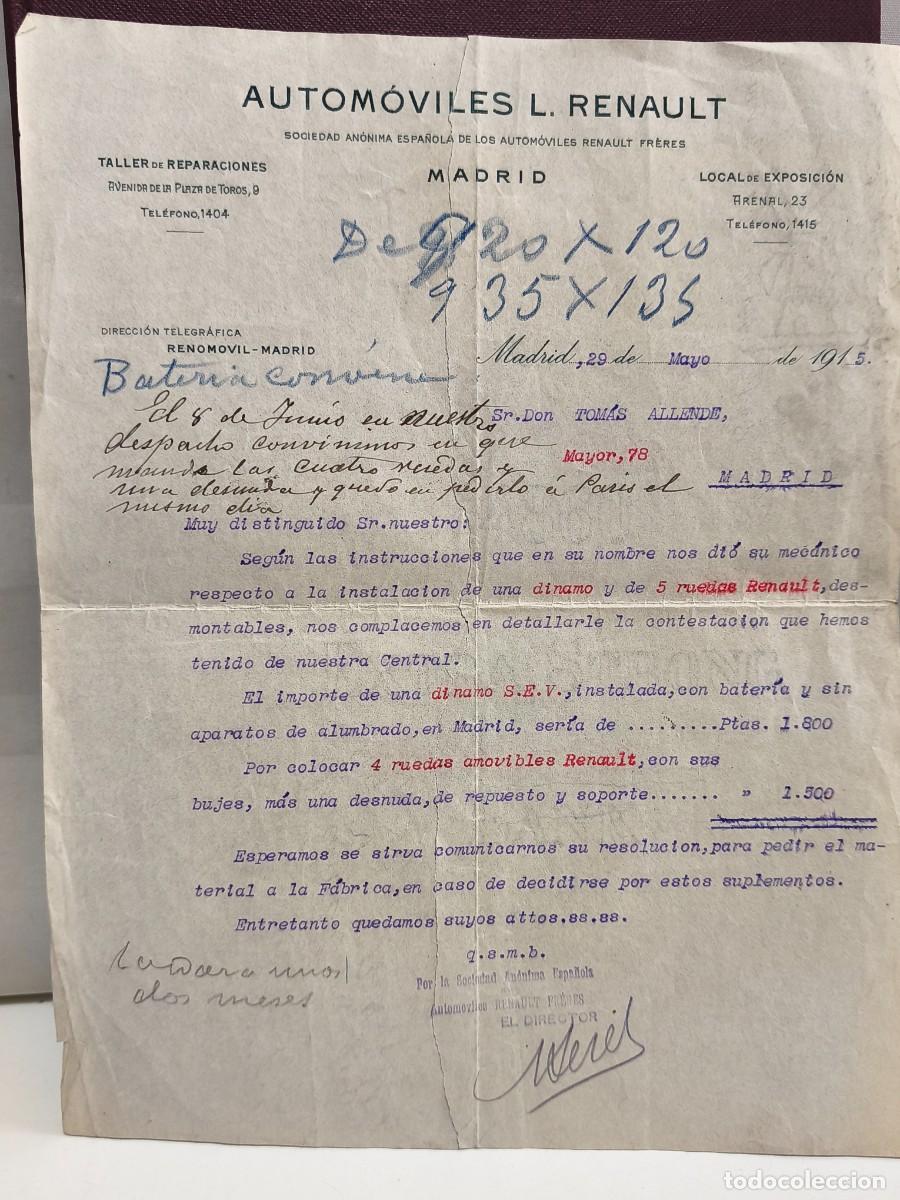 AUTOMÓVILES L. RENAULT
SOCIEDAD ANÓNIMA ESPAÑOLA DE LOS AUTOMÓVILES RENAULT FRÈRES
MADRID
TALLER DE REPARACIONES
AVENIDA DE LA PLAZA DE TOROS, 9
TELÉFONO, 1404
LOCAL DE EXPOSICIÓN
ARENAL, 23
TELÉFONO, 1415
De 920 X 120
935 X 135
DIRECCIÓN TELEGRÁFICA
RENOMOVIL-MADRID
Madrid, 29 de Mayo de 1915.
Bateria convéne
El 8 de Junio en nuestro
despacho convinimos en que
manda las cuatro ruedas y
una desnuda y quedo en pedirlo á Paris el
mismo dia
Sr. Don TOMÁS ALLENDE,
Mayor, 78
MADRID
Muy distinguido Sr. nuestro:
Según las instrucciones que en su nombre nos dió su mecánico
respecto a la instalacion de una dinamo y de 5 ruedas Renault, des-
montables, nos complacemos en detallarle la contestacion que hemos
tenido de nuestra Central.
El importe de una dinamo S.E.V., instalada, con batería y sin
aparatos de alumbrado, en Madrid, sería de .........Ptas. 1.800
Por colocar 4 ruedas amovibles Renault, con sus
bujes, más una desnuda, de repuesto y soporte....... » 1.500
Esperamos se sirva comunicarnos su resolucion, para pedir el ma-
terial a la Fábrica, en caso de decidirse por estos suplementos.
Entretanto quedamos suyos attos.ss.ss.
q.s.m.b.
Por la Sociedad Anónima Española
Automoviles RENAULT FRÈRES
EL DIRECTOR
tardara unos
dos meses
todocoleccion